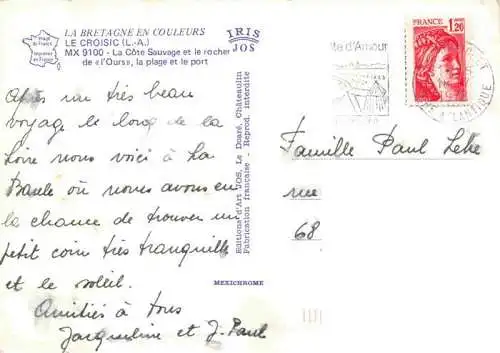 LA BRETAGNE EN COULEURS
LE CROISIC (L.-A.)
MX 9100 - La Côte Sauvage et le rocher
de «l'Ours», la plage et le port
IRIS
JOS
Après un très beau
voyage le long de la
Loire nous voici à La
Baule où nous avons eu
la chance de trouver un
petit coin très tranquille
et le soleil.
Amitiés à tous
Jacqueline et J. Paul
Editions d'Art JOS, Le Doaré, Châteaulin
Fabrication française - Reprod. interdite
MEXICHROME
d'Amour
FRANCE
1,20
ATLANTIQUE
Famille Paul
rue
68